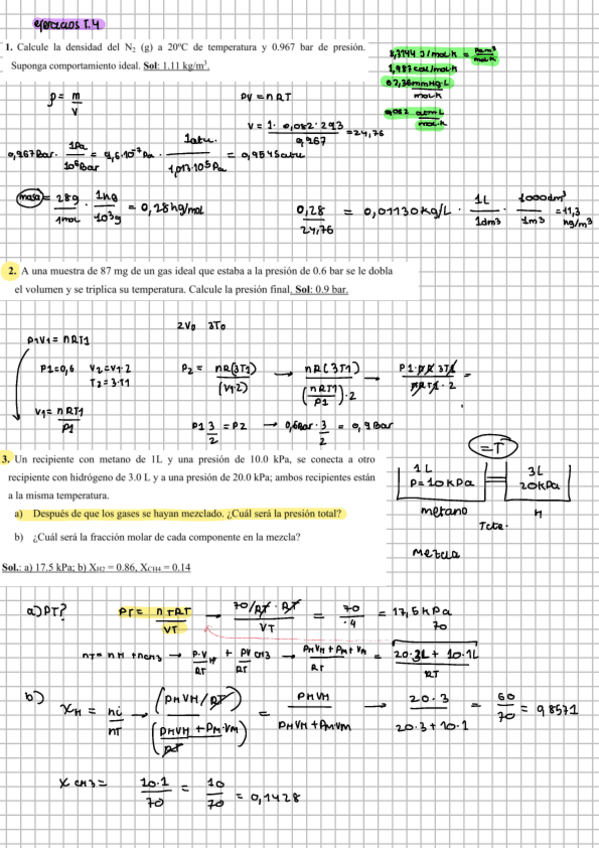 ejercicios T.4
1. Calcule la densidad del N2 (g) a 20ºC de temperatura y 0.967 bar de presión.
Suponga comportamiento ideal. Sol: 1.11 kg/m3.
8,3144 J/mol·K = Pa·m3/mol·K
1,987 cal/mol·K
62,36 mmHg·L/mol·K
0,082 atm·L/mol·K
ρ = m/V
PV = nRT
V = 1 · 0,082 · 293 / 0,967 = 24,76
0,967Bar · 1Pa/10⁵Bar = 9,6·10⁻³ Pa · 1atm/1,013·10⁵Pa = 0,9545atm
masa = 28g/1mol · 1kg/10³g = 0,28kg/mol
0,28/24,76 = 0,01130kg/L · 1L/1dm³ · 1000dm³/1m³ = 11,3 kg/m³
2. A una muestra de 87 mg de un gas ideal que estaba a la presión de 0.6 bar se le dobla
el volumen y se triplica su temperatura. Calcule la presión final. Sol: 0.9 bar.
2V0 3T0
P1V1 = nRT1
P1=0,6 V2=V1·2
T2=3·T1
P2 = nR(3T1)/(V1·2) → nR(3T1)/(nRT1/P1)·2 → P1·nR3T1/nRT1·2 =
V1 = nRT1/P1
P1 3/2 = P2 → 0,6Bar · 3/2 = 0,9Bar
3. Un recipiente con metano de 1L y una presión de 10.0 kPa, se conecta a otro
recipiente con hidrógeno de 3.0 L y a una presión de 20.0 kPa; ambos recipientes están
a la misma temperatura.
a) Después de que los gases se hayan mezclado. ¿Cuál será la presión total?
b) ¿Cuál será la fracción molar de cada componente en la mezcla?
Sol.: a) 17.5 kPa; b) XH2 = 0.86, XCH4 = 0.14
=T
1L
P=10kPa
3L
20kPa
metano
H
Tcte.
Mezcla
a) PT? PT = nTRT/VT → 70/RT · RT/VT = 70/4 = 17,5kPa
70
nT = nH + nCH3 → P·V/RT H + PV/RT CH3 → PHVH + PM+VM/RT = 20·3L + 10·1L/RT
b) XH = ni/nT → (PHVH/RT)/(PHVH + PM·VM/RT) = PHVH/PHVH + PMVM → 20·3/20·3+10·1 = 60/70 = 0,8571
XCH3 = 10·1/70 = 10/70 = 0,1428